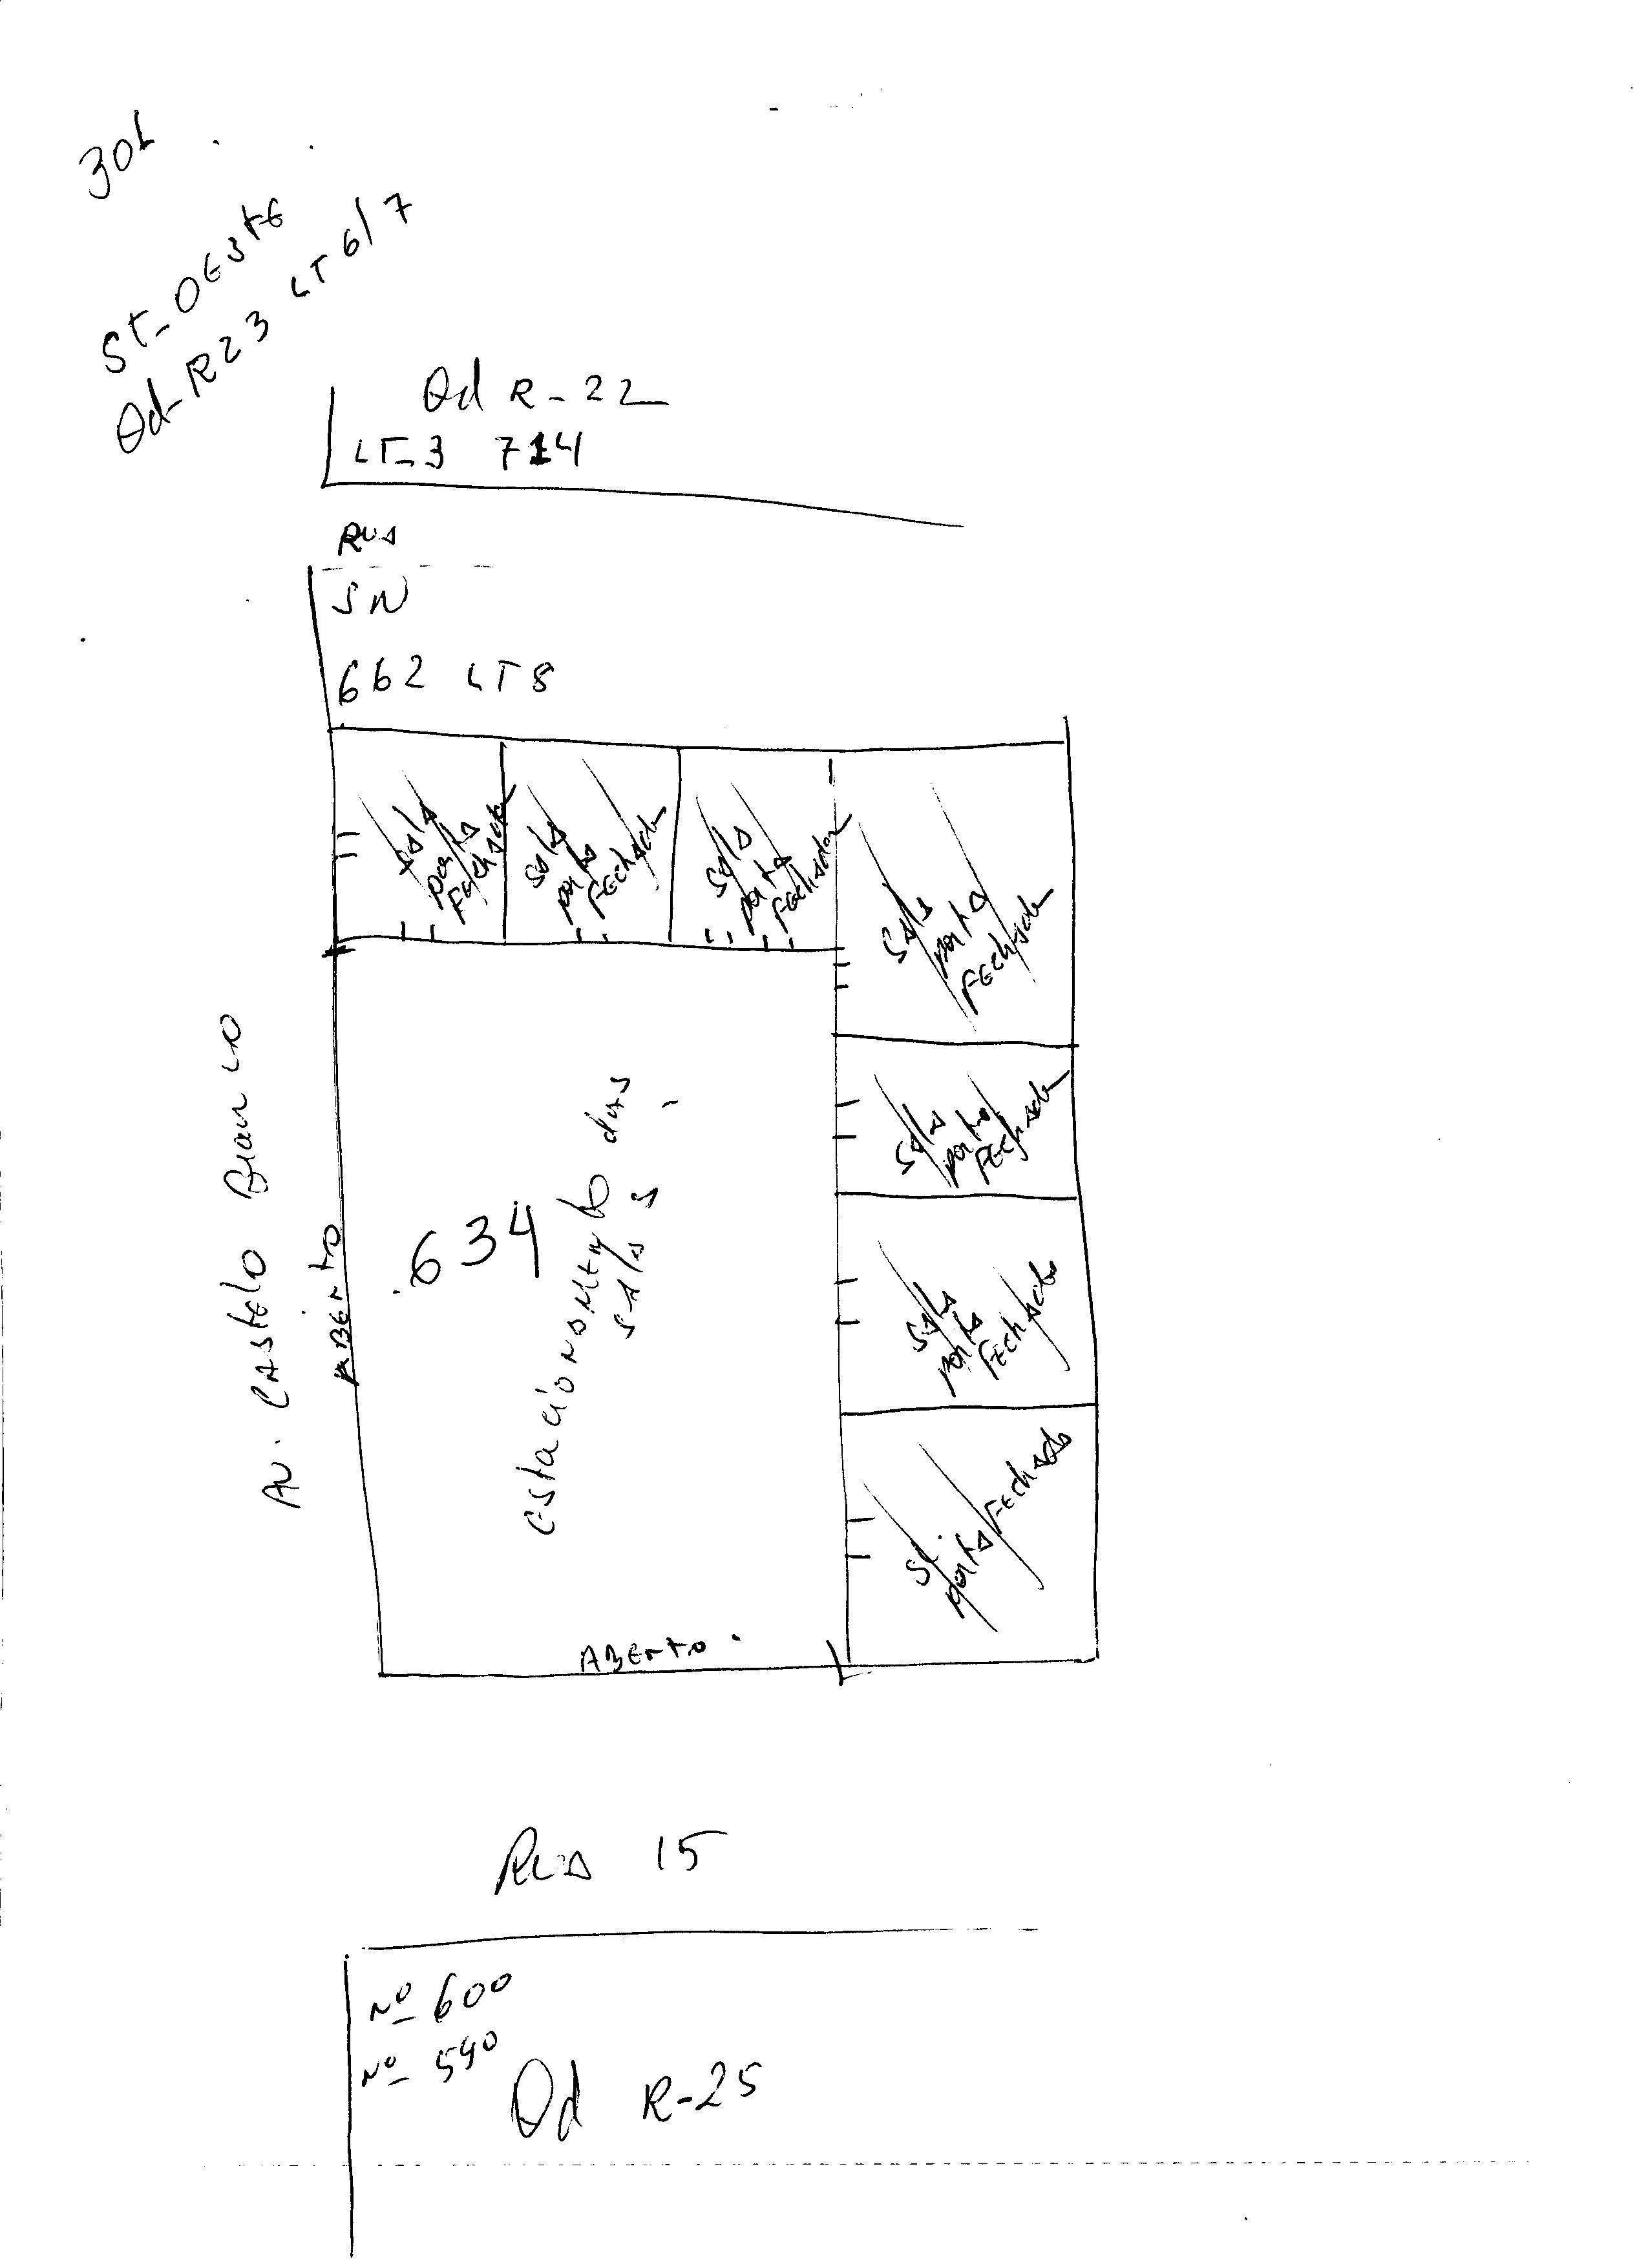 301
ST- OESTE
Qd- R23 LT 6/7
Qd R-22
LT-3 714
RUA
SN
662 LT 8
Sala
porta
Fechada
Sala
porta
Fechada
Sala
porta
Fechada
Sala
porta
Fechada
Sala
porta
Fechada
Sala
porta
Fechada
Sl.
porta Fechada
Av. CASTELO Branco
ABERTO
634
estacionamento das
salas
ABERTO.
Rua 15
Nº 600
Nº 590
Qd R-25